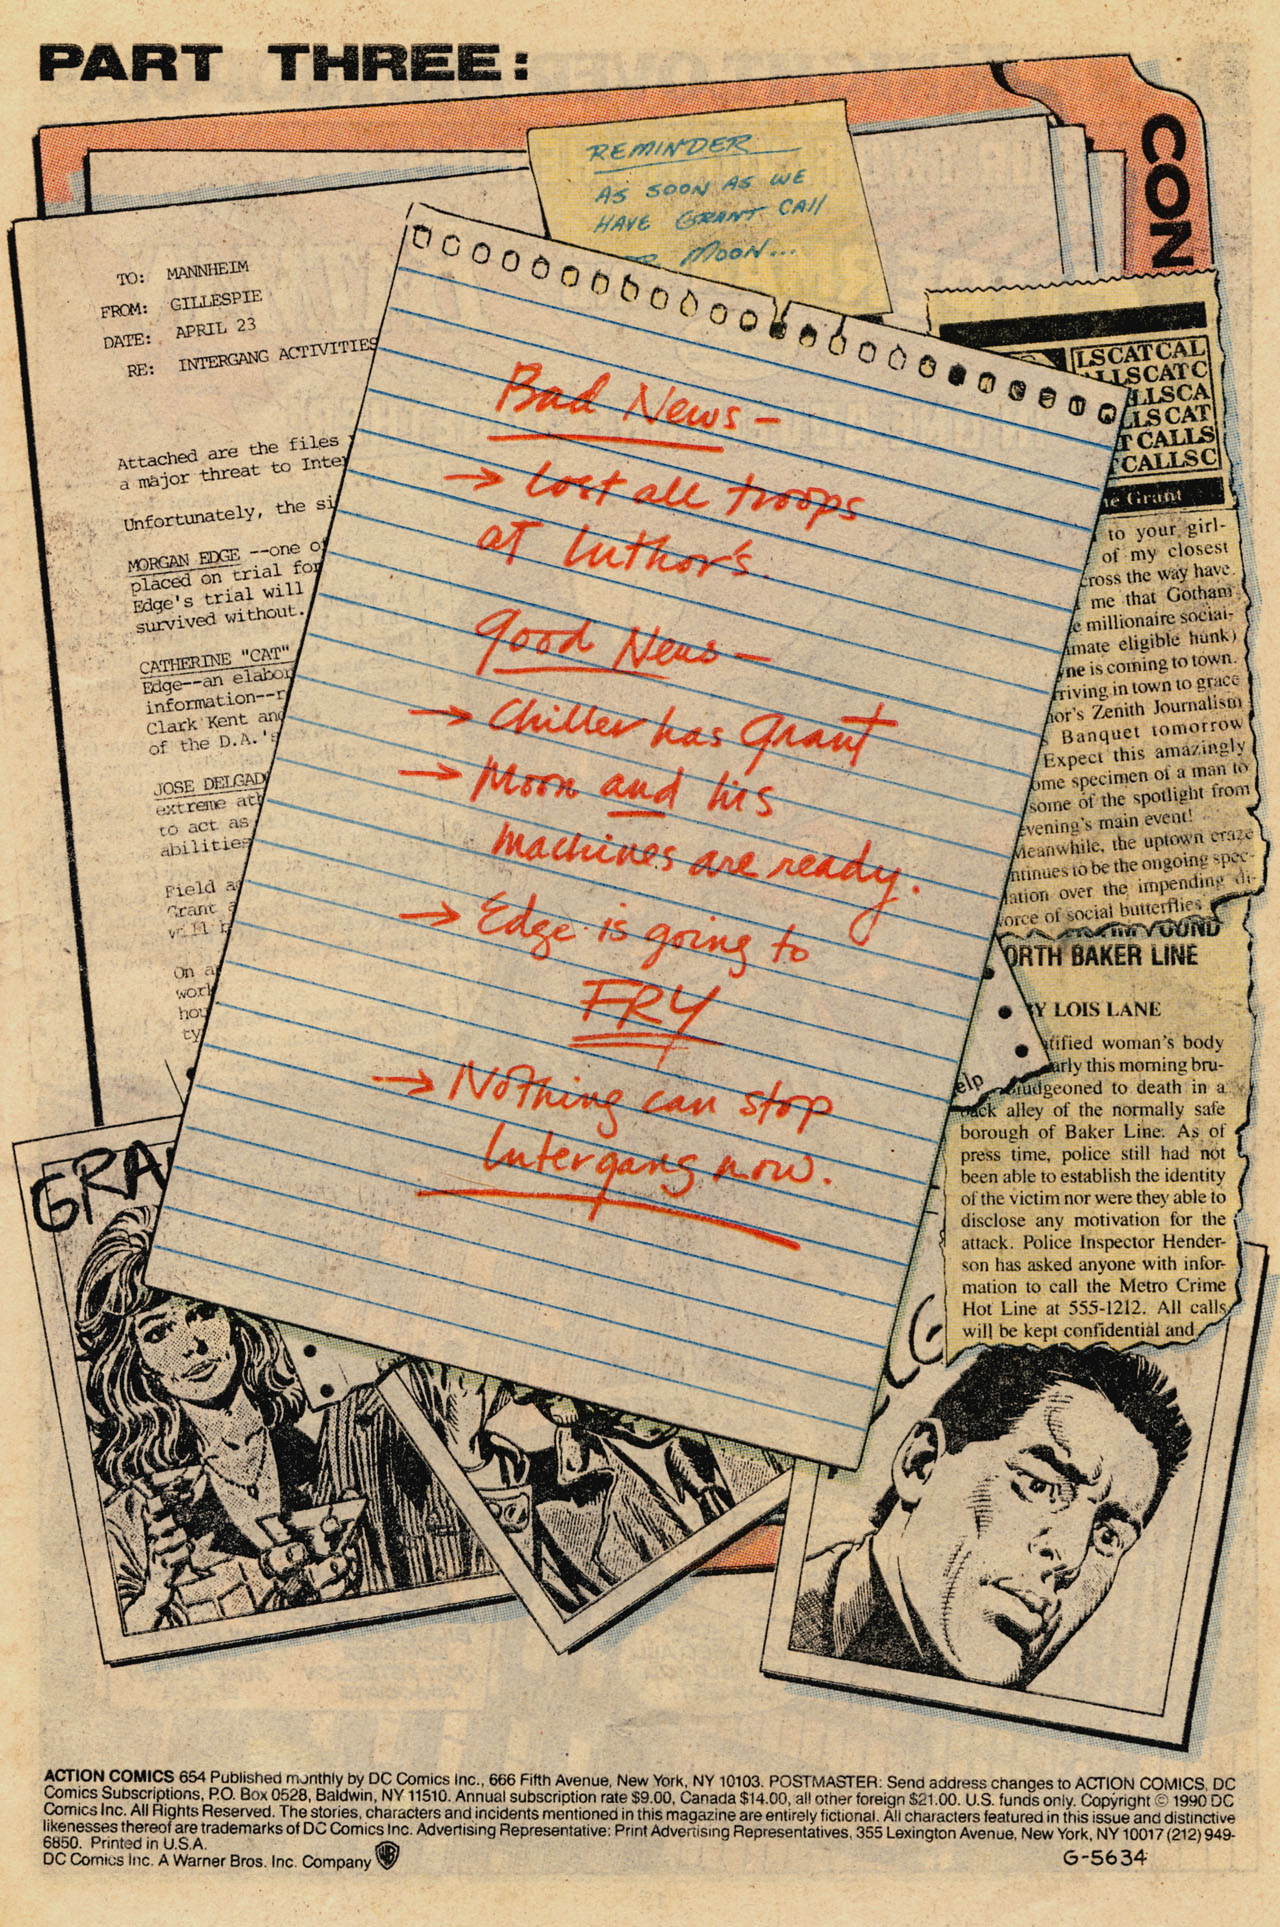 PART THREE:
CON
REMINDER
AS SOON AS WE
HAVE GRANT CALL
MOON...
TO: MANNHEIM
FROM: GILLESPIE
DATE: APRIL 23
RE: INTERGANG ACTIVITIES
Attached are the files
a major threat to Inte
Unfortunately, the si
MORGAN EDGE --one of
placed on trial for
Edge's trial will
survived without.
CATHERINE "CAT"
Edge--an elabor
information--r
Clark Kent and
of the D.A.'s
JOSE DELGADO
extreme ath
to act as
abilities
Field ag
Grant a
will b
On a
work
hou
ty
Bad News –
→ Lost all troops
at Luthor's.
Good News –
→ Chiller has Grant
→ Moon and his
machines are ready.
→ Edge is going to
FRY
→ Nothing can stop
Intergang now.
LSCATCAL
ALLSCATC
ALLSCA
LLSCAT
T CALLS
TCALLSC
Grant
to your girl-
of my closest
cross the way have
me that Gotham
millionaire social-
imate eligible hunk)
ne is coming to town.
rriving in town to grace
hor's Zenith Journalism
s Banquet tomorrow
Expect this amazingly
ome specimen of a man to
some of the spotlight from
evening's main event!
Meanwhile, the uptown craze
ntinues to be the ongoing spec-
lation over the impending di-
vorce of social butterflies
FOUND
ORTH BAKER LINE
Y LOIS LANE
tified woman's body
arly this morning bru-
udgeoned to death in a
elp
back alley of the normally safe
borough of Baker Line. As of
press time, police still had not
been able to establish the identity
of the victim nor were they able to
disclose any motivation for the
attack. Police Inspector Hender-
son has asked anyone with infor-
mation to call the Metro Crime
Hot Line at 555-1212. All calls
will be kept confidential and
GRA
G
ACTION COMICS 654 Published monthly by DC Comics Inc., 666 Fifth Avenue, New York, NY 10103. POSTMASTER: Send address changes to ACTION COMICS, DC
Comics Subscriptions, P.O. Box 0528, Baldwin, NY 11510. Annual subscription rate $9.00, Canada $14.00, all other foreign $21.00. U.S. funds only. Copyright © 1990 DC
Comics Inc. All Rights Reserved. The stories, characters and incidents mentioned in this magazine are entirely fictional. All characters featured in this issue and distinctive
likenesses thereof are trademarks of DC Comics Inc. Advertising Representative: Print Advertising Representatives, 355 Lexington Avenue, New York, NY 10017 (212) 949-
6850. Printed in U.S.A.
DC Comics Inc. A Warner Bros. Inc. Company
G-5634